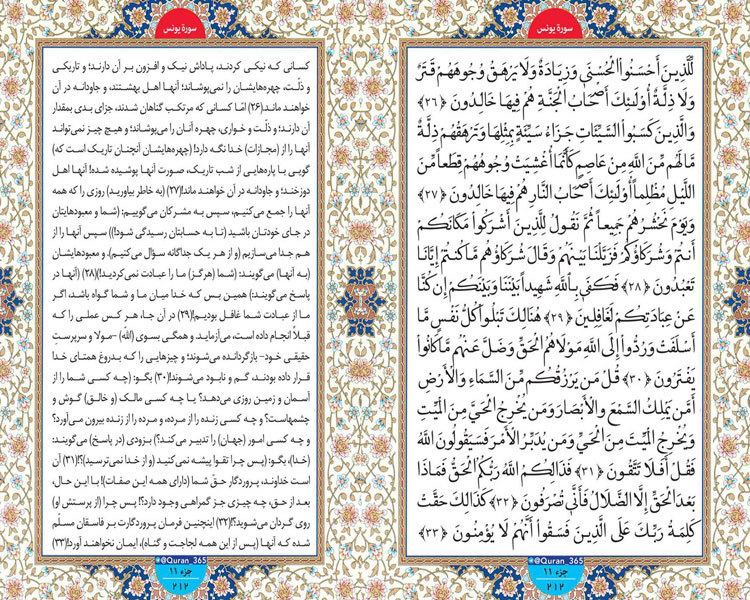 سورة یونس
لِّلَّذِينَ أَحْسَنُواْ الْحُسْنَى وَزِيَادَةٌ وَلَا يَرْهَقُ وُجُوهَهُمْ قَتَرٌ
وَلَا ذِلَّةٌ أُوْلَئِكَ أَصْحَابُ الْجَنَّةِ هُمْ فِيهَا خَالِدُونَ ﴿٢٦﴾
وَالَّذِينَ كَسَبُواْ السَّيِّئَاتِ جَزَاءُ سَيِّئَةٍ بِمِثْلِهَا وَتَرْهَقُهُمْ ذِلَّةٌ
مَّا لَهُم مِّنَ اللَّهِ مِنْ عَاصِمٍ كَأَنَّمَا أُغْشِيَتْ وُجُوهُهُمْ قِطَعاً مِّنَ
اللَّيْلِ مُظْلِماً أُوْلَئِكَ أَصْحَابُ النَّارِ هُمْ فِيهَا خَالِدُونَ ﴿٢٧﴾
وَيَوْمَ نَحْشُرُهُمْ جَمِيعاً ثُمَّ نَقُولُ لِلَّذِينَ أَشْرَكُواْ مَكَانَكُمْ
أَنتُمْ وَشُرَكَاؤُكُمْ فَزَيَّلْنَا بَيْنَهُمْ وَقَالَ شُرَكَاؤُهُم مَّا كُنتُمْ إِيَّانَا
تَعْبُدُونَ ﴿٢٨﴾ فَكَفَى بِاللَّهِ شَهِيداً بَيْنَنَا وَبَيْنَكُمْ إِن كُنَّا
عَنْ عِبَادَتِكُمْ لَغَافِلِينَ ﴿٢٩﴾ هُنَالِكَ تَبْلُواْ كُلُّ نَفْسٍ مَّا
أَسْلَفَتْ وَرُدُّواْ إِلَى اللَّهِ مَوْلَاهُمُ الْحَقِّ وَضَلَّ عَنْهُم مَّا كَانُواْ
يَفْتَرُونَ ﴿٣٠﴾ قُلْ مَن يَرْزُقُكُم مِّنَ السَّمَاءِ وَالْأَرْضِ
أَمَّن يَمْلِكُ السَّمْعَ وَالْأَبْصَارَ وَمَن يُخْرِجُ الْحَيَّ مِنَ الْمَيِّتِ
وَيُخْرِجُ الْمَيِّتَ مِنَ الْحَيِّ وَمَن يُدَبِّرُ الْأَمْرَ فَسَيَقُولُونَ اللَّهُ
فَقُلْ أَفَلَا تَتَّقُونَ ﴿٣١﴾ فَذَلِكُمُ اللَّهُ رَبُّكُمُ الْحَقُّ فَمَاذَا
بَعْدَ الْحَقِّ إِلَّا الضَّلَالُ فَأَنَّى تُصْرَفُونَ ﴿٣٢﴾ كَذَلِكَ حَقَّتْ
كَلِمَةُ رَبِّكَ عَلَى الَّذِينَ فَسَقُواْ أَنَّهُمْ لَا يُؤْمِنُونَ ﴿٣٣﴾
@Quran_365
جزء ۱۱
۲۱۲
سورة یونس
کسانی که نیکی کردند، پاداش نیک و افزون بر آن دارند؛ و تاریکی
و ذلّت، چهره‌هایشان را نمی‌پوشاند؛ آنها اهل بهشتند، و جاودانه در آن
خواهند ماند(۲۶) امّا کسانی که مرتکب گناهان شدند، جزای بدی بمقدار
آن دارند؛ و ذلّت و خواری، چهره آنان را می‌پوشاند؛ و هیچ چیز نمی‌تواند
آنها را از (مجازات) خدا نگه دارد! (چهره‌هایشان آنچنان تاریک است که)
گویی با پاره‌هایی از شب تاریک، صورت آنها پوشیده شده! آنها اهل
دوزخند؛ و جاودانه در آن خواهند ماند!(۲۷) (به خاطر بیاورید) روزی را که همه
آنها را جمع می‌کنیم، سپس به مشرکان می‌گوییم: (شما و معبودهایتان
در جای خودتان باشید (تا به حسابتان رسیدگی شود!)) سپس آنها را از
هم جدا می‌سازیم (و از هر یک جداگانه سؤال می‌کنیم). و معبودهایشان
(به آنها) می‌گویند: (شما (هرگز) ما را عبادت نمی‌کردید!)(۲۸) (آنها در
پاسخ می‌گویند:) همین بس که خدا میان ما و شما گواه باشد، اگر
ما از عبادت شما غافل بودیم!(۲۹) در آن جا، هر کس عملی را که
قبلاً انجام داده است، می‌آزماید. و همگی بسوی (الله) -مولا و سرپرست
حقیقی خود- بازگردانده می‌شوند؛ و چیزهایی را که بدروغ همتای خدا
قرار داده بودند، گم و نابود می‌شوند!(۳۰) بگو: (چه کسی شما را از
آسمان و زمین روزی می‌دهد؟ یا چه کسی مالک (و خالق) گوش و
چشمهاست؟ و چه کسی زنده را از مرده، و مرده را از زنده بیرون می‌آورد؟
و چه کسی امور (جهان) را تدبیر می‌کند؟) بزودی (در پاسخ) می‌گویند:
(خدا)، بگو: (پس چرا تقوا پیشه نمی‌کنید (و از خدا نمی‌ترسید)؟!(۳۱) آن
است خداوند، پروردگار حقّ شما (دارای همه این صفات)! با این حال،
بعد از حق، چه چیزی جز گمراهی وجود دارد؟! پس چرا (از پرستش او)
روی گردان می‌شوید؟!(۳۲) اینچنین فرمان پروردگارت بر فاسقان مسلّم
شده که آنها (پس از این همه لجاجت و گناه)، ایمان نخواهند آورد!(۳۳)
@Quran_365
جزء ۱۱
۲۱۲